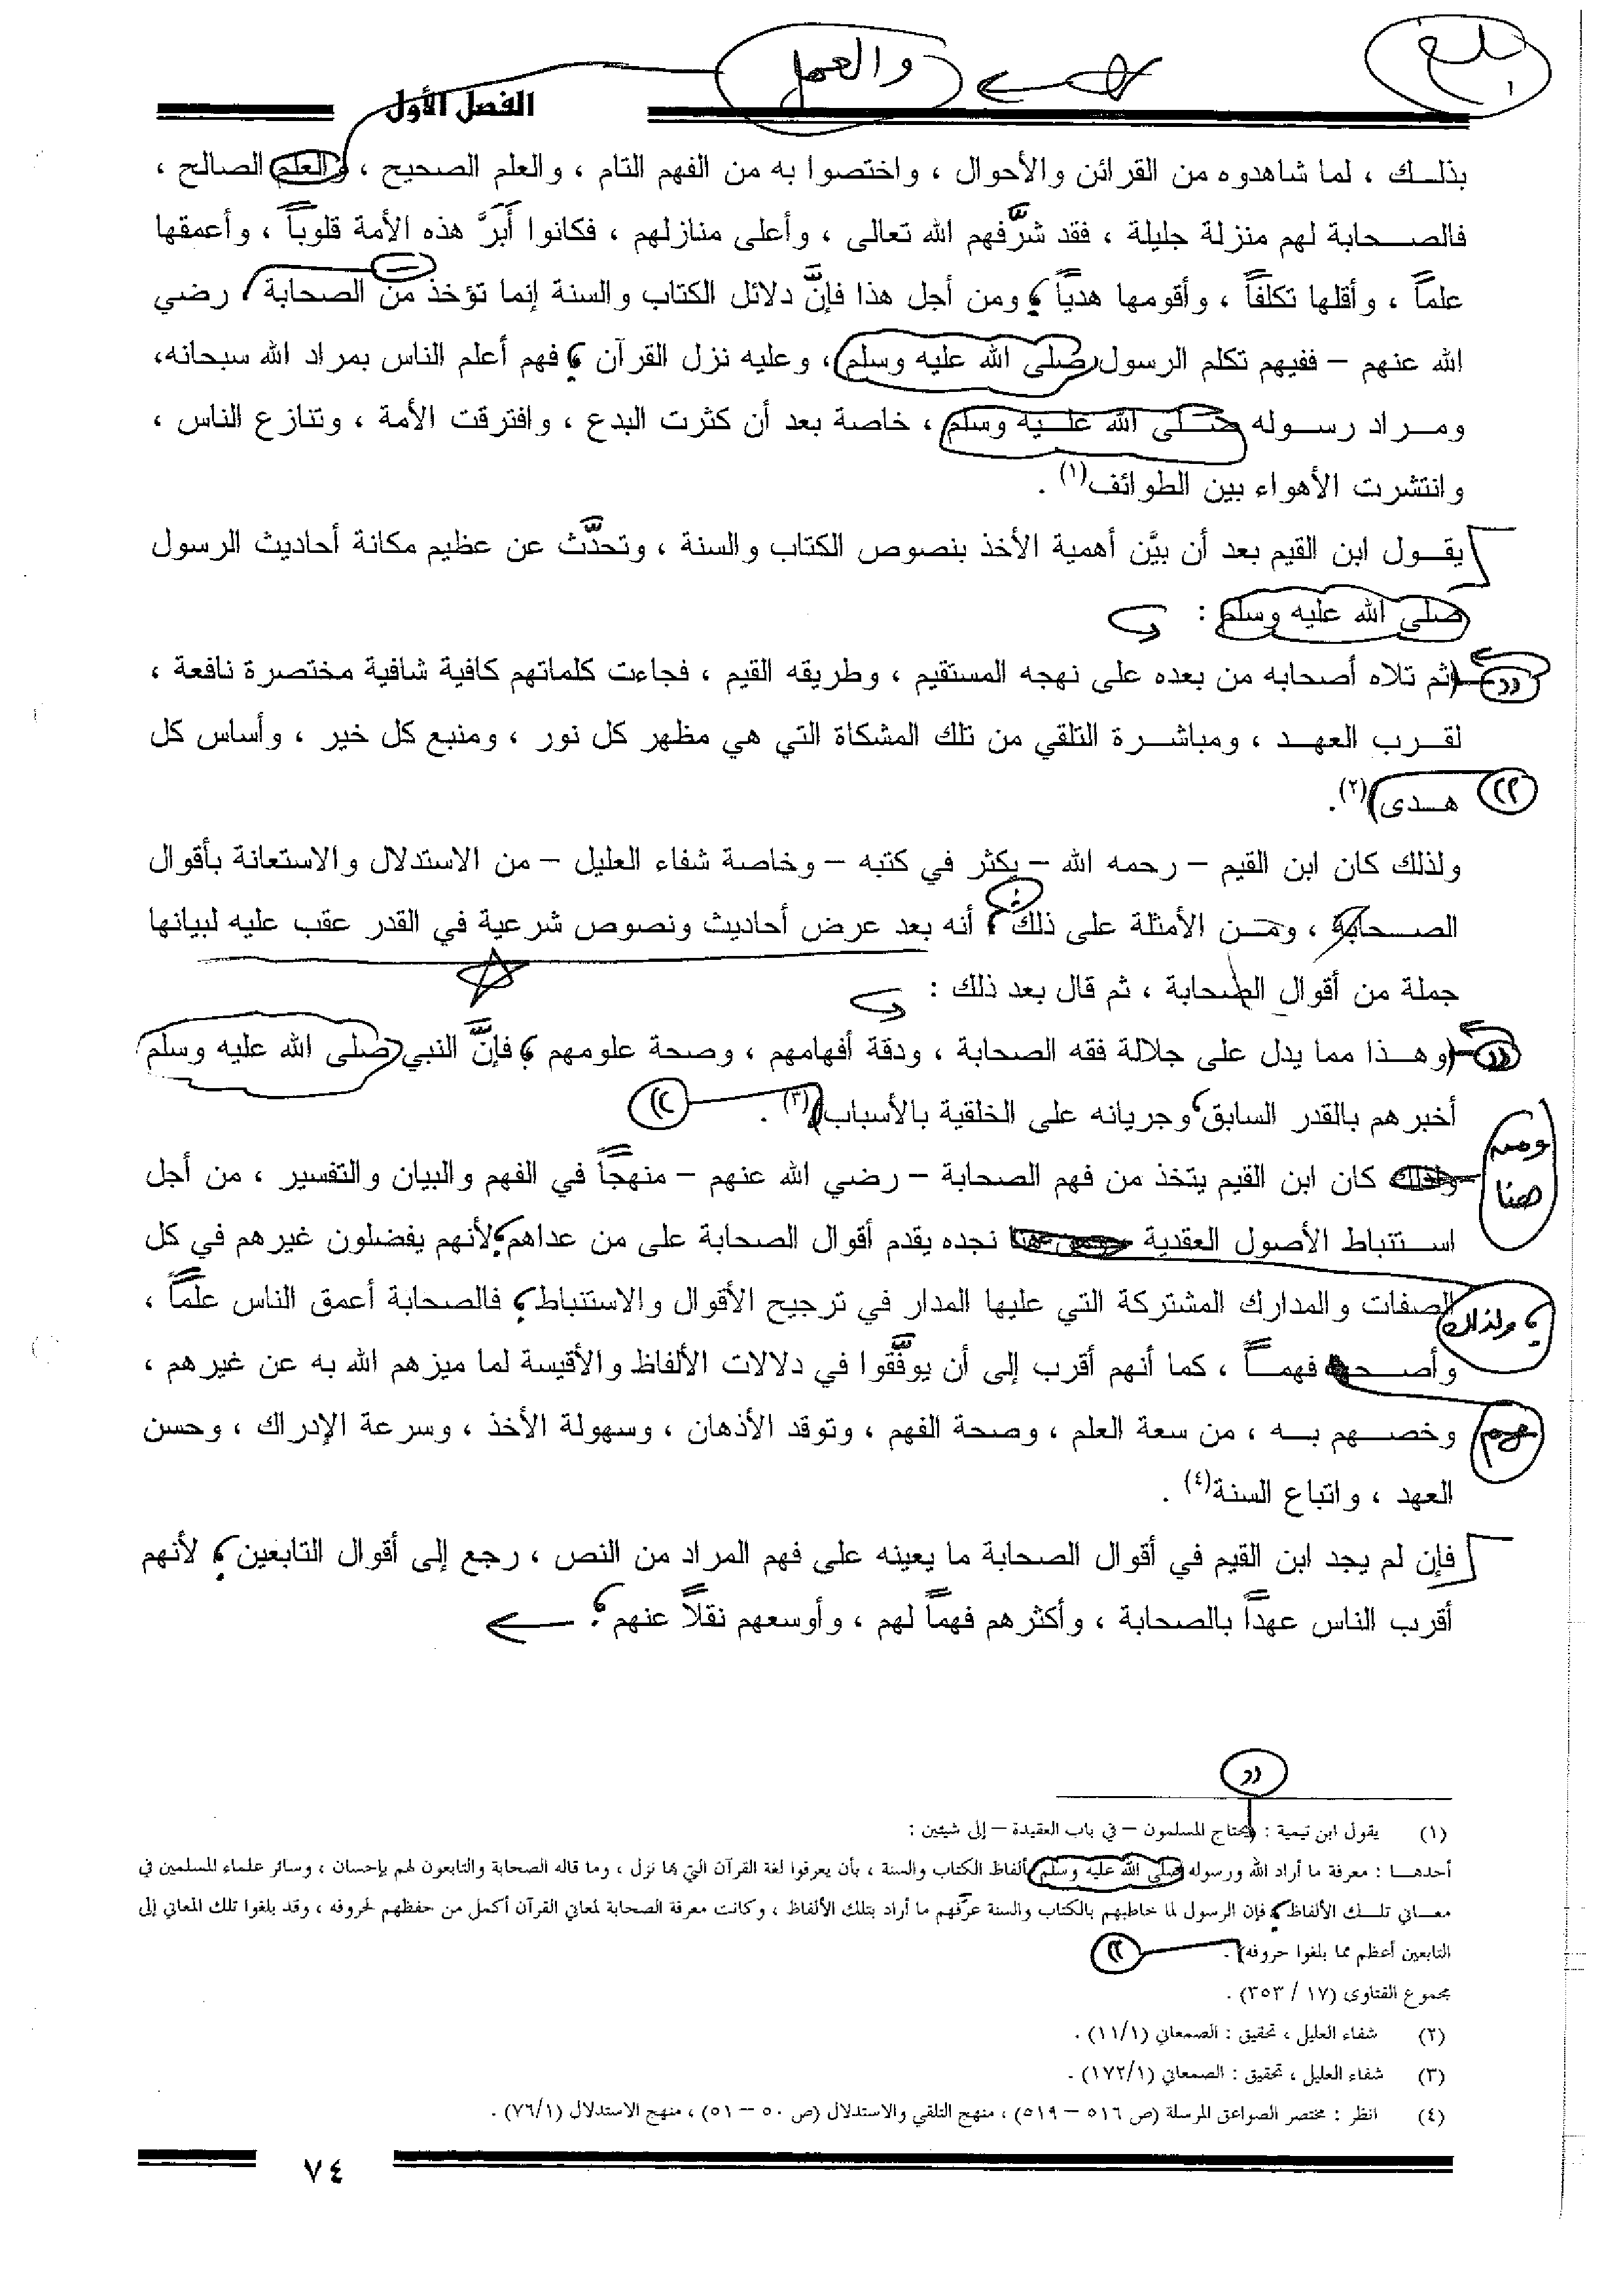 بلغ
والعمل
الفصل الأول
بذلك ، لما شاهدوه من القرائن والأحوال ، واختصوا به من الفهم التام ، والعلم الصحيح ، والعلم الصالح ،
فالصحابة لهم منزلة جليلة ، فقد شرَّفهم الله تعالى ، وأعلى منازلهم ، فكانوا أَبَرَّ هذه الأمة قلوباً ، وأعمقها
علماً ، وأقلها تكلفاً ، وأقومها هدياً ؛ ومن أجل هذا فإنَّ دلائل الكتاب والسنة إنما تؤخذ من الصحابة ، رضي
الله عنهم – ففيهم تكلم الرسول صلى الله عليه وسلم ، وعليه نزل القرآن ؛ فهم أعلم الناس بمراد الله سبحانه،
ومراد رسوله صلى الله عليه وسلم ، خاصة بعد أن كثرت البدع ، وافترقت الأمة ، وتنازع الناس ،
وانتشرت الأهواء بين الطوائف(١) .
يقول ابن القيم بعد أن بيَّن أهمية الأخذ بنصوص الكتاب والسنة ، وتحدَّث عن عظيم مكانة أحاديث الرسول
صلى الله عليه وسلم :
(ثم تلاه أصحابه من بعده على نهجه المستقيم ، وطريقه القيم ، فجاءت كلماتهم كافية شافية مختصرة نافعة ،
لقرب العهد ، ومباشرة التلقي من تلك المشكاة التي هي مظهر كل نور ، ومنبع كل خير ، وأساس كل
هدى)(٢).
ولذلك كان ابن القيم – رحمه الله – يكثر في كتبه – وخاصة شفاء العليل – من الاستدلال والاستعانة بأقوال
الصحابة ، ومن الأمثلة على ذلك : أنه بعد عرض أحاديث ونصوص شرعية في القدر عقب عليه لبيانها
جملة من أقوال الصحابة ، ثم قال بعد ذلك :
(وهذا مما يدل على جلالة فقه الصحابة ، ودقة أفهامهم ، وصحة علومهم ؛ فإنَّ النبي صلى الله عليه وسلم
أخبرهم بالقدر السابق ، وجريانه على الخلقية بالأسباب)(٣) .
ومن هنا
ولذلك كان ابن القيم يتخذ من فهم الصحابة – رضي الله عنهم – منهجاً في الفهم والبيان والتفسير ، من أجل
استنباط الأصول العقدية ومن هنا نجده يقدم أقوال الصحابة على من عداهم ؛ لأنهم يفضلون غيرهم في كل
؛ ولذلك
الصفات والمدارك المشتركة التي عليها المدار في ترجيح الأقوال والاستنباط ؛ فالصحابة أعمق الناس علماً ،
وأصحه فهماً ، كما أنهم أقرب إلى أن يوفَّقوا في دلالات الألفاظ والأقيسة لما ميزهم الله به عن غيرهم ،
وخصهم به ، من سعة العلم ، وصحة الفهم ، وتوقد الأذهان ، وسهولة الأخذ ، وسرعة الإدراك ، وحسن
العهد ، واتباع السنة(٤) .
فإن لم يجد ابن القيم في أقوال الصحابة ما يعينه على فهم المراد من النص ، رجع إلى أقوال التابعين ؛ لأنهم
أقرب الناس عهداً بالصحابة ، وأكثرهم فهماً لهم ، وأوسعهم نقلاً عنهم ؛
(١) يقول ابن تيمية : (يحتاج المسلمون – في باب العقيدة – إلى شيئين :
أحدها : معرفة ما أراد الله ورسوله صلى الله عليه وسلم بألفاظ الكتاب والسنة ، بأن يعرفوا لغة القرآن التي بها نزل ، وما قاله الصحابة والتابعون لهم بإحسان ، وسائر علماء المسلمين في
معاني تلك الألفاظ ؛ فإن الرسول لما خاطبهم بالكتاب والسنة عرَّفهم ما أراد بتلك الألفاظ ، وكانت معرفة الصحابة لمعاني القرآن أكمل من حفظهم لحروفه ، وقد بلغوا تلك المعاني إلى
التابعين أعظم مما بلغوا حروفه) .
مجموع الفتاوى (١٧ / ٣٥٣) .
(٢) شفاء العليل ، تحقيق : الصمعاني (١١/١) .
(٣) شفاء العليل ، تحقيق : الصمعاني (١٧٢/١) .
(٤) انظر : مختصر الصواعق المرسلة (ص ٥١٦ – ٥١٩) ، منهج التلقي والاستدلال (ص ٥٠ – ٥١) ، منهج الاستدلال (٧٦/١) .
٧٤